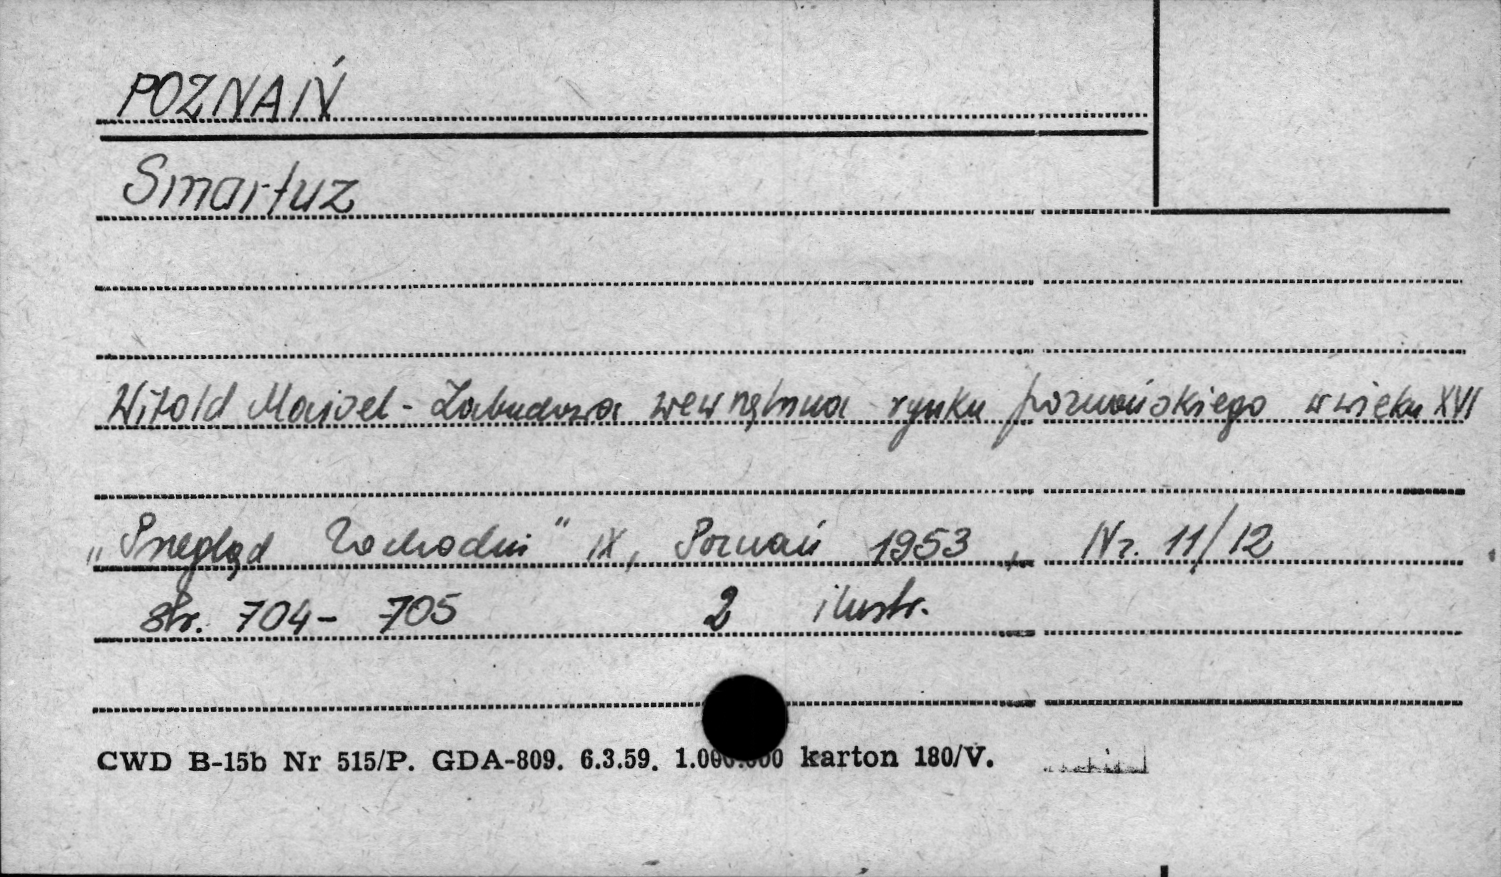 POZNAŃ
Smartuz
Witold Maisel - Zabudowa wewnętrzna rynku poznańskiego w wieku XVI
„Przegląd Zachodni" IX, Poznań 1953, Nr. 11/12
str. 704- 705 2 ilustr.
CWD B-15b Nr 515/P. GDA-809. 6.3.59. 1.000.000 karton 180/V.